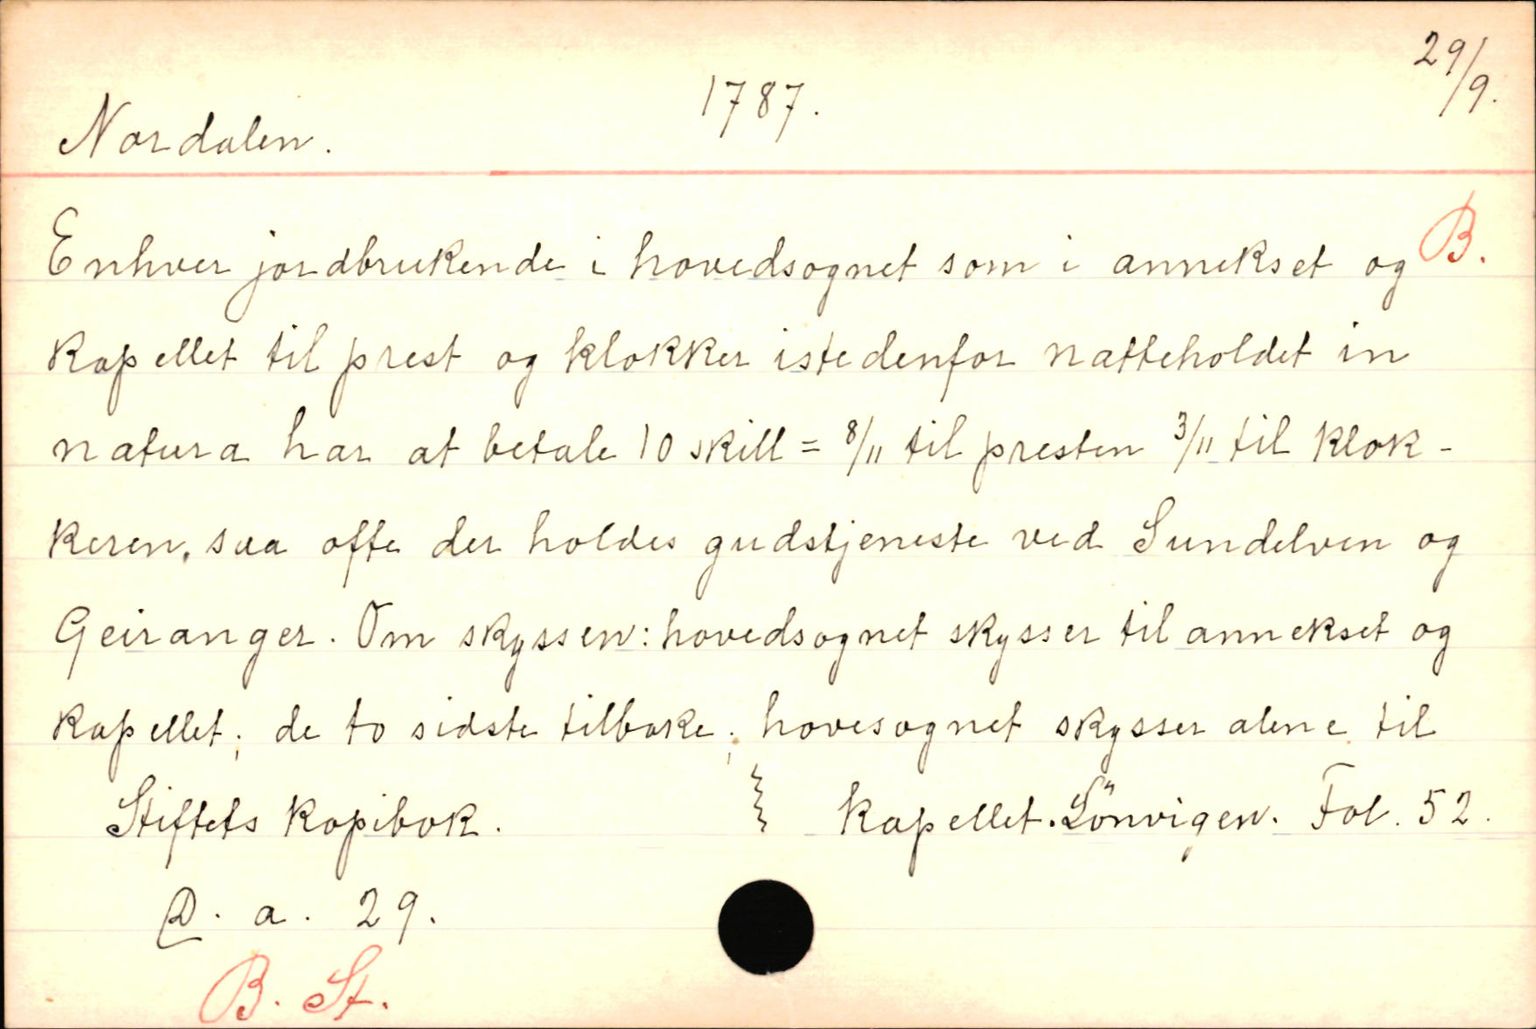 29/9.
1787.
Nordalen.
B.
Enhver jordbrukende i hovedsognet som i annekset og
kapellet til prest og klokker istedenfor natteholdet in
natura har at betale 10 skill = 8/11 til presten 3/11 til klok-
keren, saa ofte der holdes gudstjeneste ved Sundelven og
Geiranger. Om skyssen: hovedsognet skysser til annekset og
kapellet; de to sidste tilbake; hovesognet skysser alene til
Stiftets kopibok. kapellet. Lönvigen. Fol. 52.
D. a. 29.
B. St.